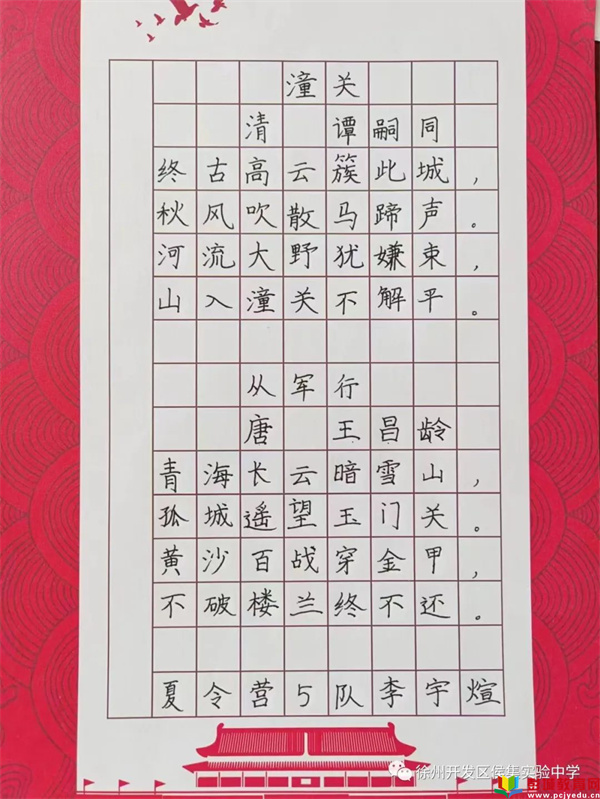 潼关
清 谭嗣同
终古高云簇此城，
秋风吹散马蹄声。
河流大野犹嫌束，
山入潼关不解平。
从军行
唐 王昌龄
青海长云暗雪山，
孤城遥望玉门关。
黄沙百战穿金甲，
不破楼兰终不还。
夏令营5队李宇煊
徐州开发区侯集实验中学
www.pcjyedu.cn